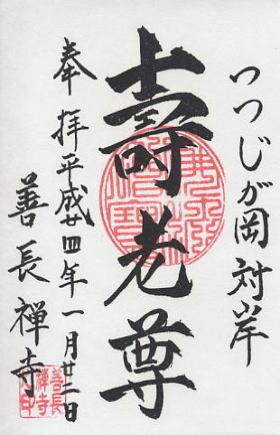 つつじが岡対岸
壽老尊
奉拝平成廿四年一月廿二日
善長禅寺
善長
禅寺
之印